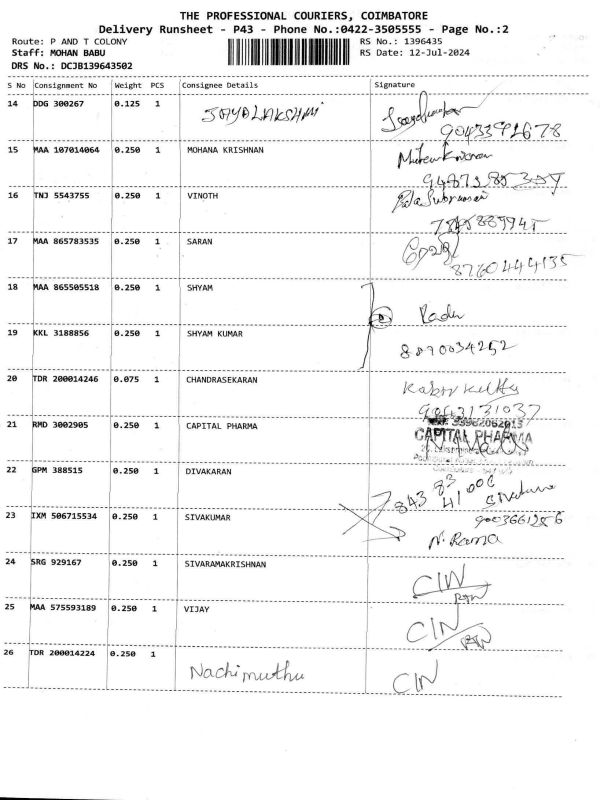 THE PROFESSIONAL COURIERS, COIMBATORE
Delivery Runsheet - P43 - Phone No.:0422-3505555 - Page No.:2
Route: P AND T COLONY RS No.: 1396435
Staff: MOHAN BABU RS Date: 12-Jul-2024
DRS No.: DCJB139643502
S No Consignment No Weight PCS Consignee Details Signature
14 DDG 300267 0.125 1 JAYALAKSHMI
9043391678
15 MAA 107014064 0.250 1 MOHANA KRISHNAN
16 TNJ 5543755 0.250 1 VINOTH
17 MAA 865783535 0.250 1 SARAN
8760444135
18 MAA 865505518 0.250 1 SHYAM
19 KKL 3188856 0.250 1 SHYAM KUMAR
8070034252
20 TDR 200014246 0.075 1 CHANDRASEKARAN
9043131037
21 RMD 3002905 0.250 1 CAPITAL PHARMA CAPITAL PHARMA
22 GPM 388515 0.250 1 DIVAKARAN
23 IXM 506715534 0.250 1 SIVAKUMAR
N. Rama
24 SRG 929167 0.250 1 SIVARAMAKRISHNAN CIN
25 MAA 575593189 0.250 1 VIJAY CIN
26 TDR 200014224 0.250 1 Nachimuthu CIN